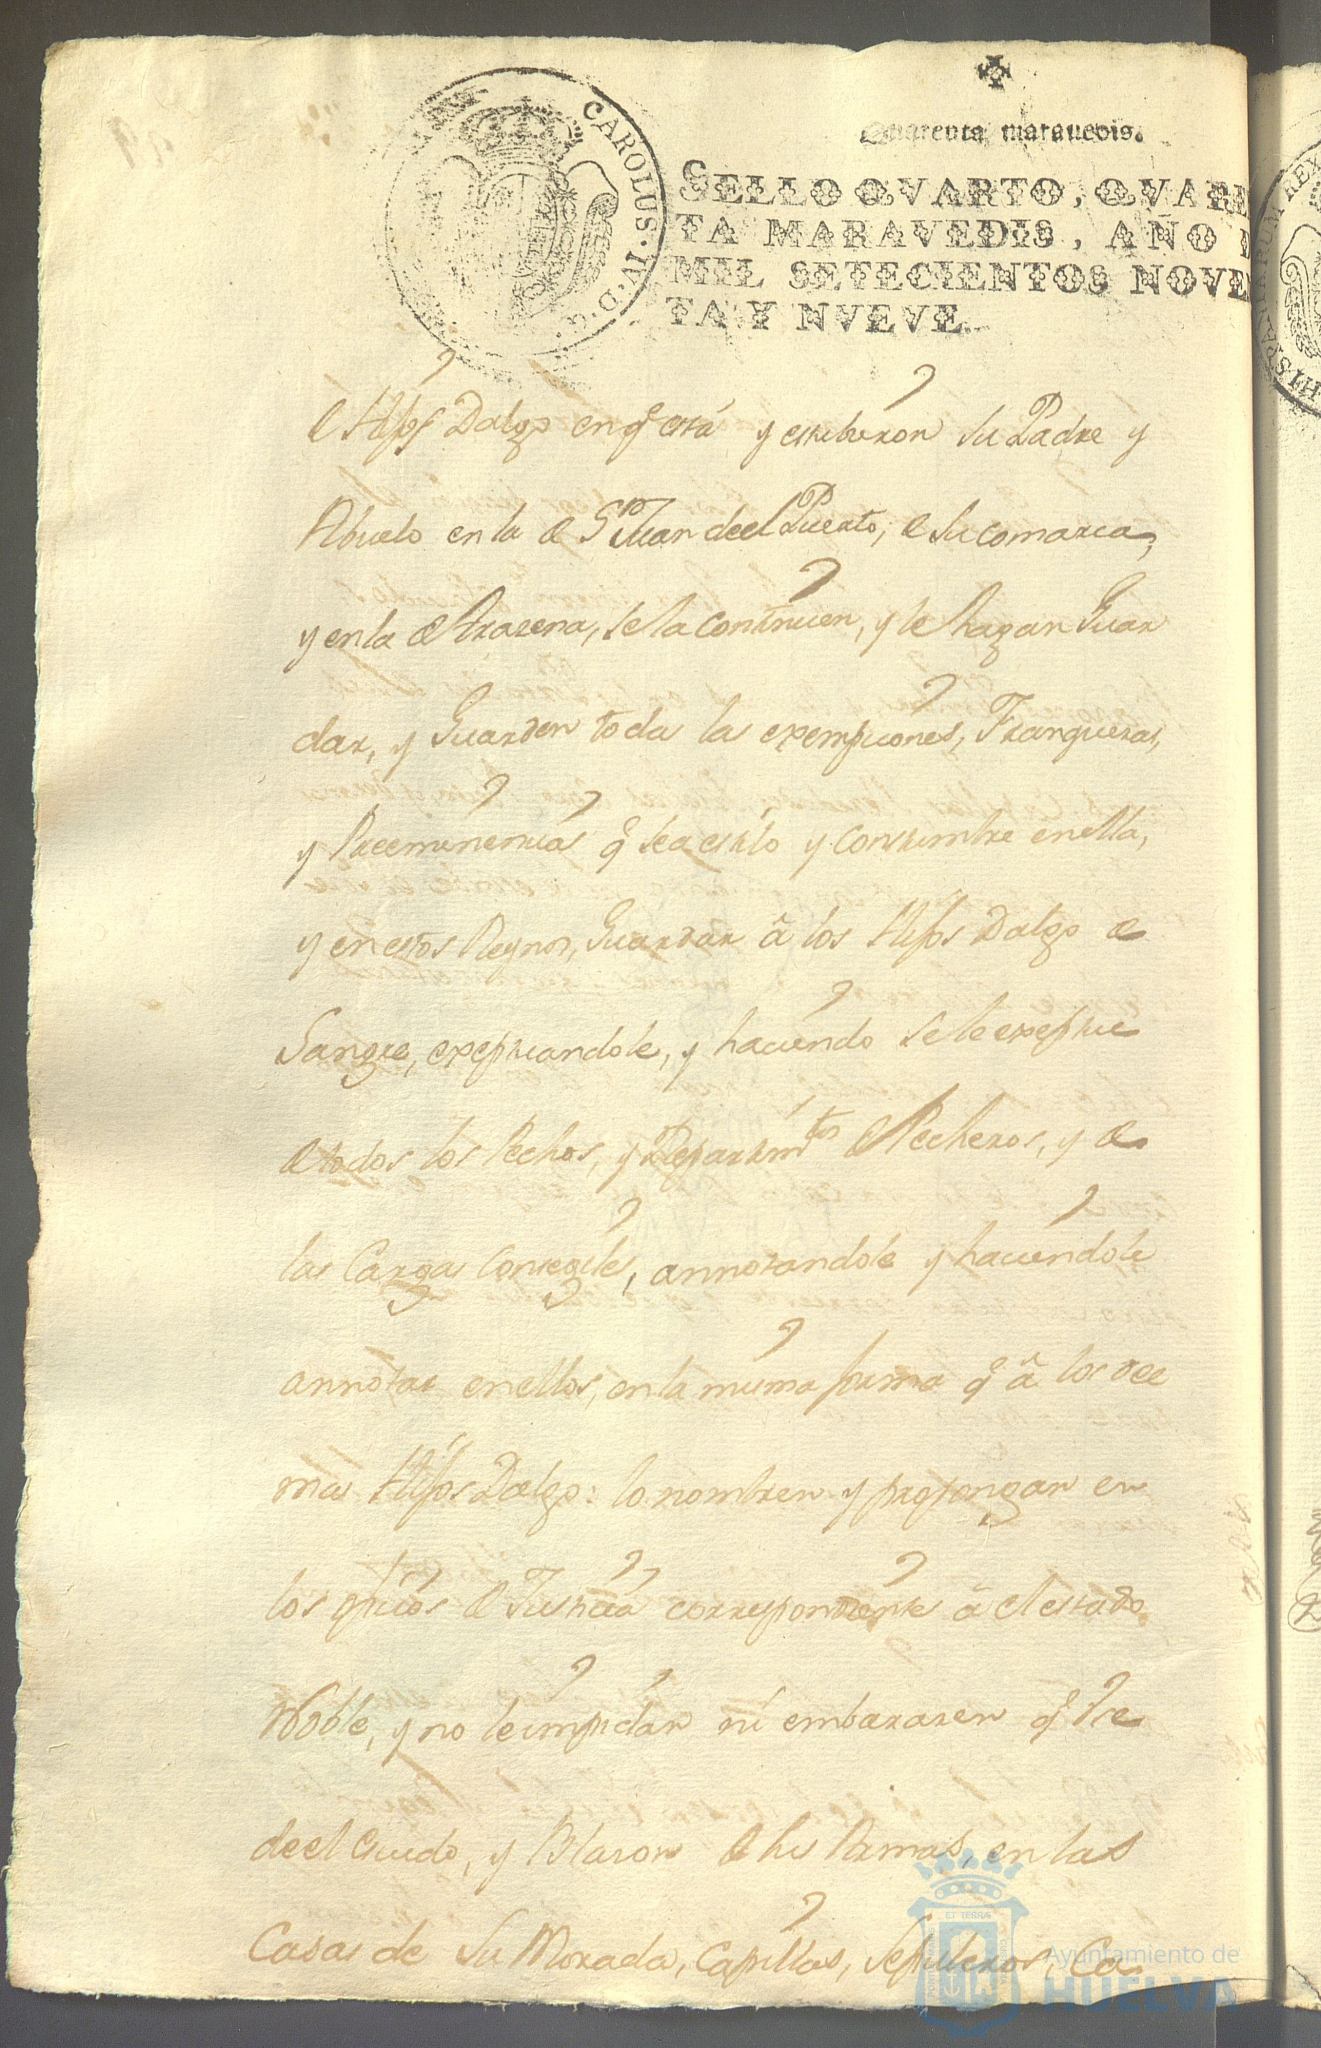 Quarenta maravedis.
CAROLUS · IV · D · G ·
SELLO QVARTO, QVARE
TA MARAVEDIS, AÑO D
MIL SETECIENTOS NOVEN
TA Y NVEVE.
HISPANIARUM REX
de Hijos Dalgo en q̃ está y estubieron su Padre y
Abuelo en la de Sn Juan de el Puerto, de su comarca,
y en la de Aracena, se la continuen, y le hagan Guar
dar, y Guarden todas las exempciones, Franquezas,
y Preeminencias q̃ sea estilo y constumbre en ella,
y en estos Reynos, Guardar â los Hijos Dalgo de
Sangre, exepcuandole, y haciendo se le exepcue
de todos los Pechos, y Repartimtos de Pecheros, y de
las Cargas Concegiles, annotandole y haciendole
annotar en ellos, en la misma forma q̃ â los de
mas Hijos Dalgo: lo nombren y propongan en
los oficios de Justicia correspondientes â el estado
Noble, y no le impidan ni embarazen q̃ Use
de el Escudo, y Blason de sus Armas, en las
Casas de Su Morada, Capillas, Sepulcros, Ca
Ayuntamiento de
HUELVA